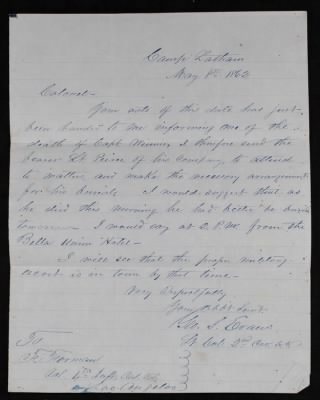 Camp Latham
May 8th 1862
Colonel
Your note of this date has just
been handed to me informing me of the
death of Capt Winne, I therefore send the
bearer Lt. of his Company to attend
to matters and make the necessary arrangement
for his burial. I would suggest that as
he died this morning he had better be buried
tomorrow. I would say at 2. P.M. from the
Bella Union Hotel-
I will see that the proper military
escort is in town by that time-
Very Respectfully
Your Obdt Servt
S. Evans
Lt Col. 2nd Cav. C.V.
To
Forman
Col. 4th Inft. Cal. Vol
Los Angeles